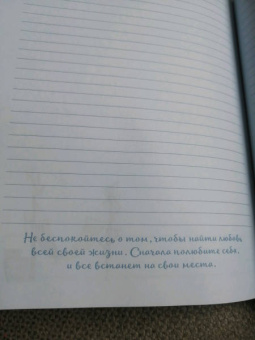 Не беспокойтесь о том, чтобы найти любовь
всей своей жизни. Сначала полюбите себя,
и все встанет на свои места.